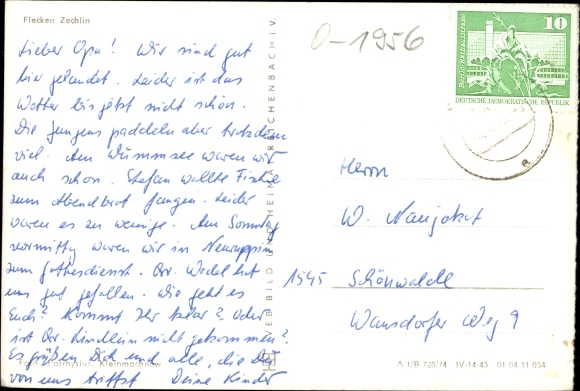 Flecken Zechlin
Lieber Opa! Wir sind gut
hier gelandet. Leider ist das
Wetter bis jetzt nicht schön.
Die Jungens paddeln aber trotzdem
viel. Am Wummsee waren wir
auch schon. Stefan wollte Fische
zum Abendbrot fangen. Leider
waren es zu wenige. Am Sonntag
vormittag waren wir in Neuruppin
zum Gottesdienst. Br. Wedel hat
uns gut gefallen. Wie geht es
Euch? Kommt Ihr klar? Oder
ist Br. Kindlein nicht gekommen?
Es grüßen Dich und alle, die Du
von uns triffst Deine Kinder
Foto: Parthysius, Kleinmachnow
VEB BILD UND HEIMAT REICHENBACH I. V.
0-1956
10
DEUTSCHE DEMOKRATISCHE REPUBLIK
Herrn
W. Naujokat
1545 Schönwalde
Wansdorfer Weg 9
A 1/B 728/74 IV-14-45 01 04 11 054